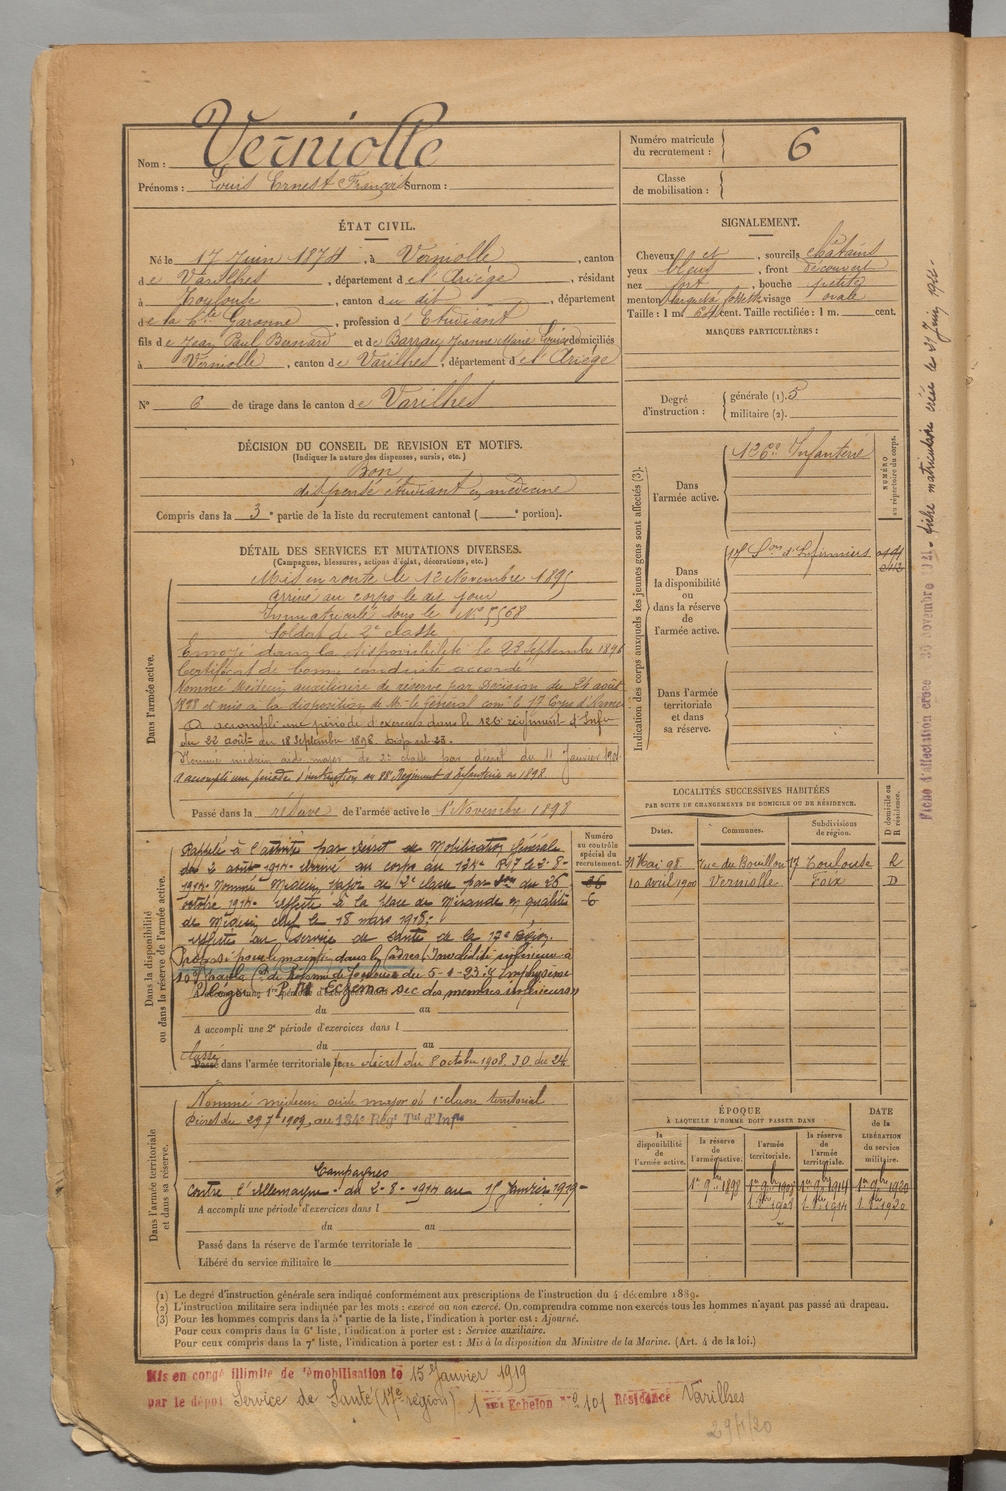 Nom : Verniolle
Prénoms : Louis Ernest François Surnom :
Numéro matricule du recrutement : 6
Classe de mobilisation :
ÉTAT CIVIL.
Né le 17 Juin 1874, à Verniolle, canton
de Varilhes, département de l'Ariège, résidant
à Toulouse, canton du dit, département
de la Hte Garonne, profession d'Etudiant
fils de Jean Paul Bernard et de Barrau Jeanne Marie Louise domiciliés
à Verniolle, canton de Varilhes, département de l'Ariège
N° 6 de tirage dans le canton de Varilhes
SIGNALEMENT.
Cheveux et, sourcils châtains
yeux bleus, front découvert
nez fort, bouche petite
menton fossette visage ovale
Taille : 1 m. 64 cent. Taille rectifiée : 1 m. cent.
MARQUES PARTICULIÈRES :
Degré d'instruction : générale (1). 5
militaire (2).
DÉCISION DU CONSEIL DE REVISION ET MOTIFS.
(Indiquer la nature des dispenses, sursis, etc.)
Bon
dispensé étudiant en médecine
Compris dans la 3e partie de la liste du recrutement cantonal ( e portion).
DÉTAIL DES SERVICES ET MUTATIONS DIVERSES.
(Campagnes, blessures, actions d'éclat, décorations, etc.)
Dans l'armée active.
Mis en route le 12 Novembre 1895
Arrivé au corps le dit jour
Immatriculé sous le N° 5568
Soldat de 2e classe
Envoyé dans la disponibilité le 23 septembre 1896
Certificat de bonne conduite accordé
Nommé Médecin auxiliaire de réserve par Décision du 24 août
1898 et mis à la disposition de Mr le Général comt le 17 Corps d'Armée
A accompli une période d'exercices dans le 126 régiment d'Infie
du 22 août au 18 septembre 1898.
Nommé médecin aide major de 2e classe par décret du 11 Janvier 1901
A accompli une période d'instruction au 88e Régiment d'Infanterie en 1898.
Passé dans la réserve de l'armée active le 1er Novembre 1898
Indication des corps auxquels les jeunes gens sont affectés (3).
NUMÉRO au répertoire du corps.
Dans l'armée active.
126e Infanterie
Dans la disponibilité ou dans la réserve de l'armée active.
17 Son d'Infirmiers
Dans l'armée territoriale et dans sa réserve.
LOCALITÉS SUCCESSIVES HABITÉES
PAR SUITE DE CHANGEMENTS DE DOMICILE OU DE RÉSIDENCE.
Dates. Communes. Subdivisions de région. D domicile ou R résidence.
31 Mai 98 rue du Bouillon 17 Toulouse R
10 avril 1900 Verniolle Foix D
Dans la disponibilité ou dans la réserve de l'armée active.
Numéro au contrôle spécial du recrutement.
6
Rappelé à l'activité par décret de Mobilisation Générale
du 2 août 1914. Arrivé au corps au 134e RIT le 2-8-
1914. Nommé Médecin Major de 2e classe par Don du 26
octobre 1914. Affecté à la place de Mirande en qualité
de Médecin chef le 18 mars 1918.
Affecté au service de santé de la 17e Région.
Proposé pour le maintien dans les cadres. Invalidité inférieure à
10% par la Con de Réforme de Toulouse du 5-1-23: 1° Emphysème
léger 2° Eczema sec des membres inférieurs
A accompli une 1re période d'exercices dans l
du au
A accompli une 2e période d'exercices dans l
du au
Classé
Passé dans l'armée territoriale par décret du 8 octobre 1908. J.O. du 24
Dans l'armée territoriale et dans sa réserve.
Nommé médecin aide major de 1e classe territorial
Décret du 29 7bre 1909, au 134e Régt Tal d'Infie
Campagnes
Contre l'Allemagne du 2-8-1914 au 15 Janvier 1919
A accompli une période d'exercices dans l
du au
Passé dans la réserve de l'armée territoriale le
Libéré du service militaire le
ÉPOQUE
À LAQUELLE L'HOMME DOIT PASSER DANS
la disponibilité de l'armée active. la réserve de l'armée active. l'armée territoriale. la réserve de l'armée territoriale.
DATE de la LIBÉRATION du service militaire.
1er 9bre 1898 1er 9bre 1908 1er 9bre 1914 1er 9bre 1920
1. 8bre 1908 1. 8bre 1914 1. 8bre 1920
(1) Le degré d'instruction générale sera indiqué conformément aux prescriptions de l'instruction du 4 décembre 1889.
(2) L'instruction militaire sera indiquée par les mots : exercé ou non exercé. On comprendra comme non exercés tous les hommes n'ayant pas passé au drapeau.
(3) Pour les hommes compris dans la 5e partie de la liste, l'indication à porter est : Ajourné.
Pour ceux compris dans la 6e liste, l'indication à porter est : Service auxiliaire.
Pour ceux compris dans la 7e liste, l'indication à porter est : Mis à la disposition du Ministre de la Marine. (Art. 4 de la loi.)
Mis en congé illimité de démobilisation le 15 Janvier 1919
par le dépôt Service de Santé (17e région) 1 Echelon n° 101 Résidence Varilhes
29/1/20
Fiche d'affectation créée 30 novembre 1921. fiche matriculaire créée le 27 Juin